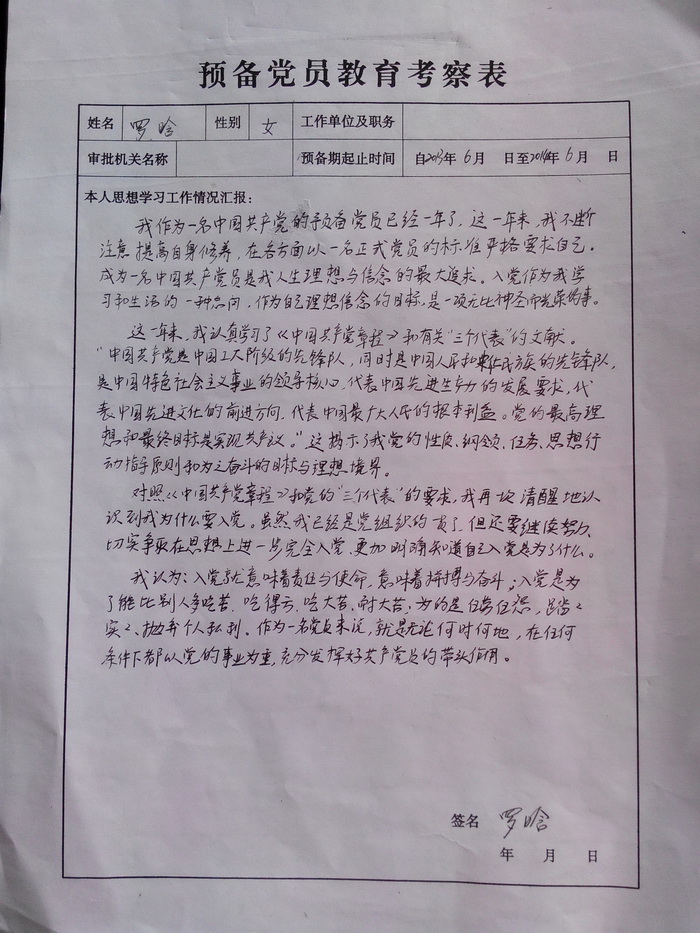 预备党员教育考察表
姓名 罗晗 性别 女 工作单位及职务
审批机关名称 预备期起止时间 自2013年6月 日至2014年6月 日
本人思想学习工作情况汇报：
我作为一名中国共产党的预备党员已经一年了，这一年来，我不断
注意提高自身修养，在各方面以一名正式党员的标准严格要求自己。
成为一名中国共产党员是我人生理想与信念的最大追求。入党作为我学
习和生活的一种志向，作为自己理想信念的目标，是一项无比神圣而光荣的事。
这一年来，我认真学习了《中国共产党章程》和有关“三个代表”的文献。
“中国共产党是中国工人阶级的先锋队，同时是中国人民和中华民族的先锋队，
是中国特色社会主义事业的领导核心，代表中国先进生产力的发展要求，代
表中国先进文化的前进方向，代表中国最广大人民的根本利益。党的最高理
想和最终目标是实现共产主义。”这揭示了我党的性质、纲领、任务、思想行
动指导原则和为之奋斗的目标与理想境界。
对照《中国共产党章程》和党的“三个代表”的要求，我再次清醒地认
识到我为什么要入党。虽然我已经是党组织的 了，但还要继续努力，
切实争取在思想上进一步完全入党，更加明确知道自己入党是为了什么。
我认为：入党就意味着责任与使命，意味着拼搏与奋斗；入党是为
了能比别人多吃苦、吃得亏、吃大苦、耐大苦；为的是任劳任怨，踏踏
实实、抛弃个人私利。作为一名党员来说，就是无论何时何地，在任何
条件下都以党的事业为重，充分发挥好共产党员的带头作用。
签名 罗晗
年 月 日